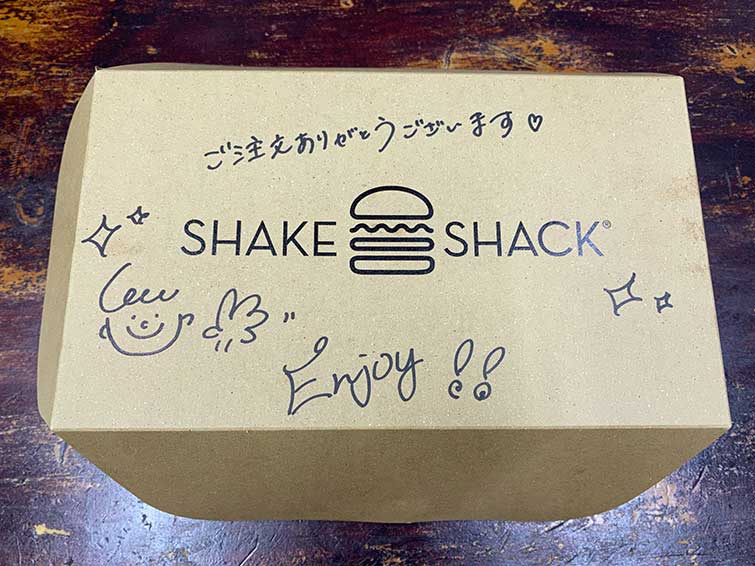 ご注文ありがとうございます♡
SHAKE SHACK®
Enjoy !!